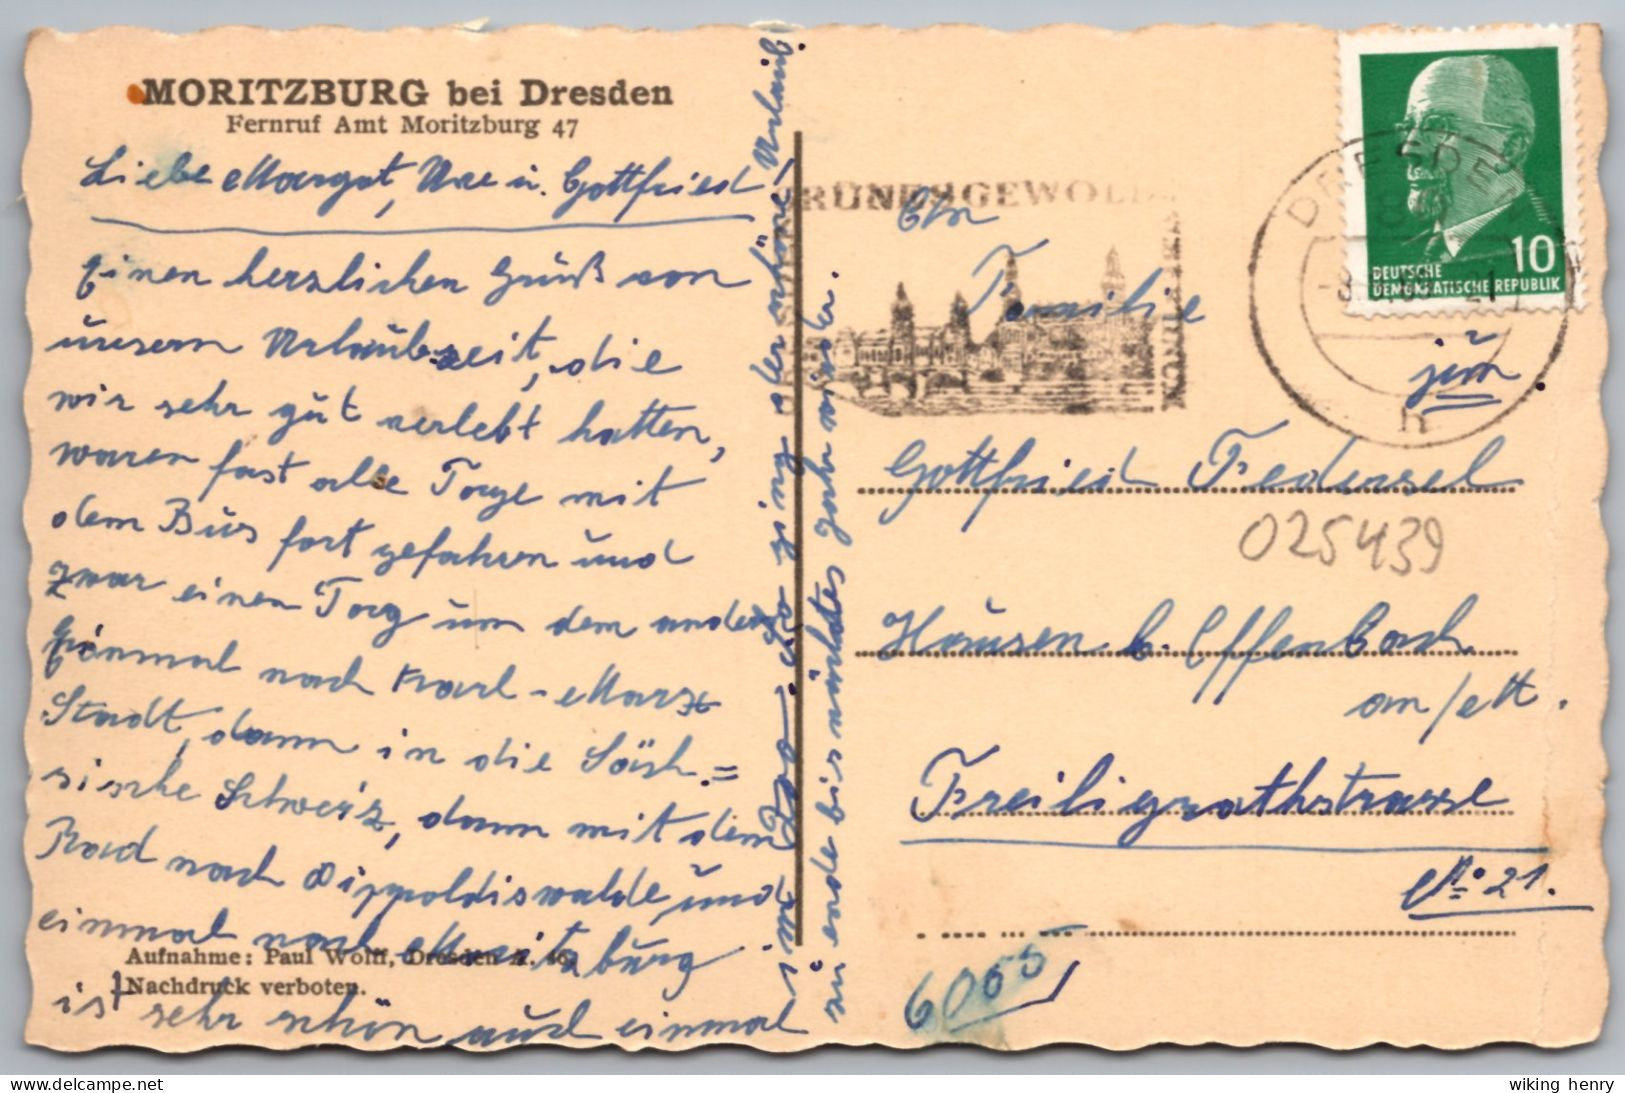 MORITZBURG bei Dresden
Fernruf Amt Moritzburg 47
Liebe Margot, Ure u. Gottfried!
Einen herzlichen Gruß von
unsern Urlaubszeit, die
wir sehr gut verlebt hatten,
waren fast alle Tage mit
dem Bus fort gefahren und
zwar einen Tag um dem andern
Einmal nach Karl-Marx
Stadt, dann in die Säch=
sische Schweiz, dann mit dem
Rad nach Dippoldiswalde, und
einmal nach Moritzburg
ist sehr schön und einmal
im Zoo. So ging der schöne Urlaub
zu ende bis nächstes Jahr wieder.
Aufnahme: Paul Wolff, Dresden A. 16.
Nachdruck verboten.
DRESDEN
h
10
DEUTSCHE
DEMOKRATISCHE REPUBLIK
An
Familie
jun.
Gottfried Federsel
025439
Hausen b. Offenbach
am/M.
Freiligrathstrasse
No 21.
6055
wiking henry